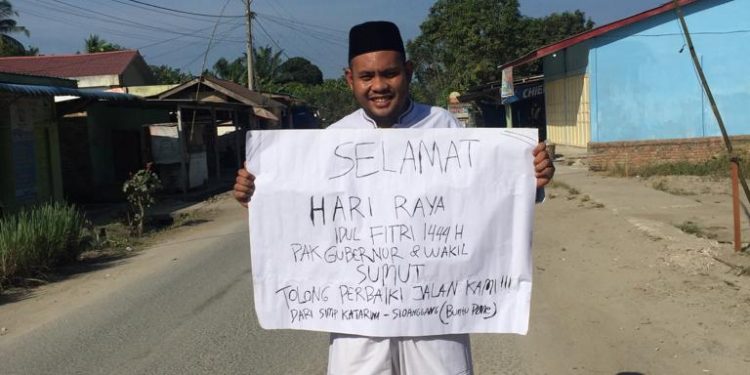 SELAMAT
HARI RAYA
IDUL FITRI 1444 H
PAK GUBERNUR & WAKIL
SUMUT
TOLONG PERBAIKI JALAN KAMI!!!
DARI SIMP KATARUM - SIDANGGANG (
CHIE